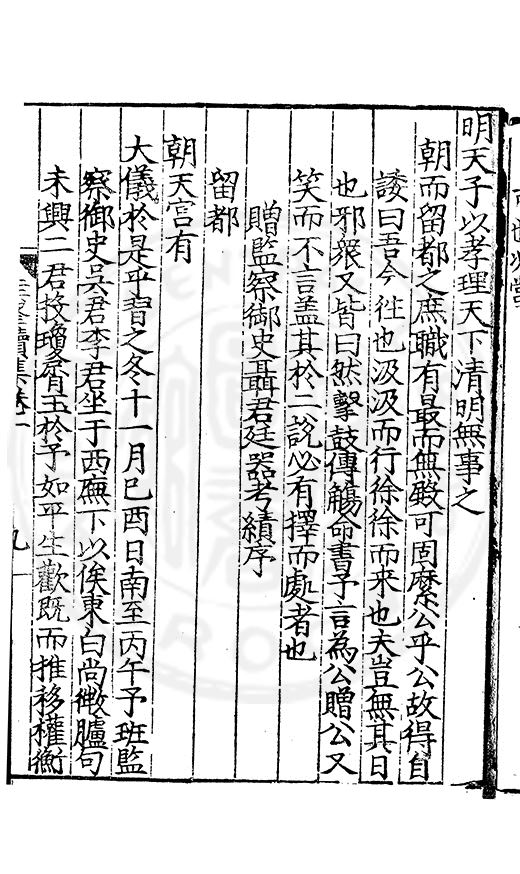 明天子以孝理天下清明無事之
朝而留都之庶職有最而無毀可固縻公乎公故得自
諉曰吾今往也汲汲而行徐徐而来也夫豈無其日
也邪衆又皆曰然擊鼓傳觴命書予言為公贈公又
笑而不言盖其於二說必有擇而處者也
贈監察御史聶君廷器考績序
留都
朝天宫有
大儀於是乎習之冬十一月已酉日南至丙午予班監
察御史吳君李君坐于西廡下以俟東白尚微臚句
未興二君投瓊屑玉於予如平生歡既而推移權衡
續集卷一
九